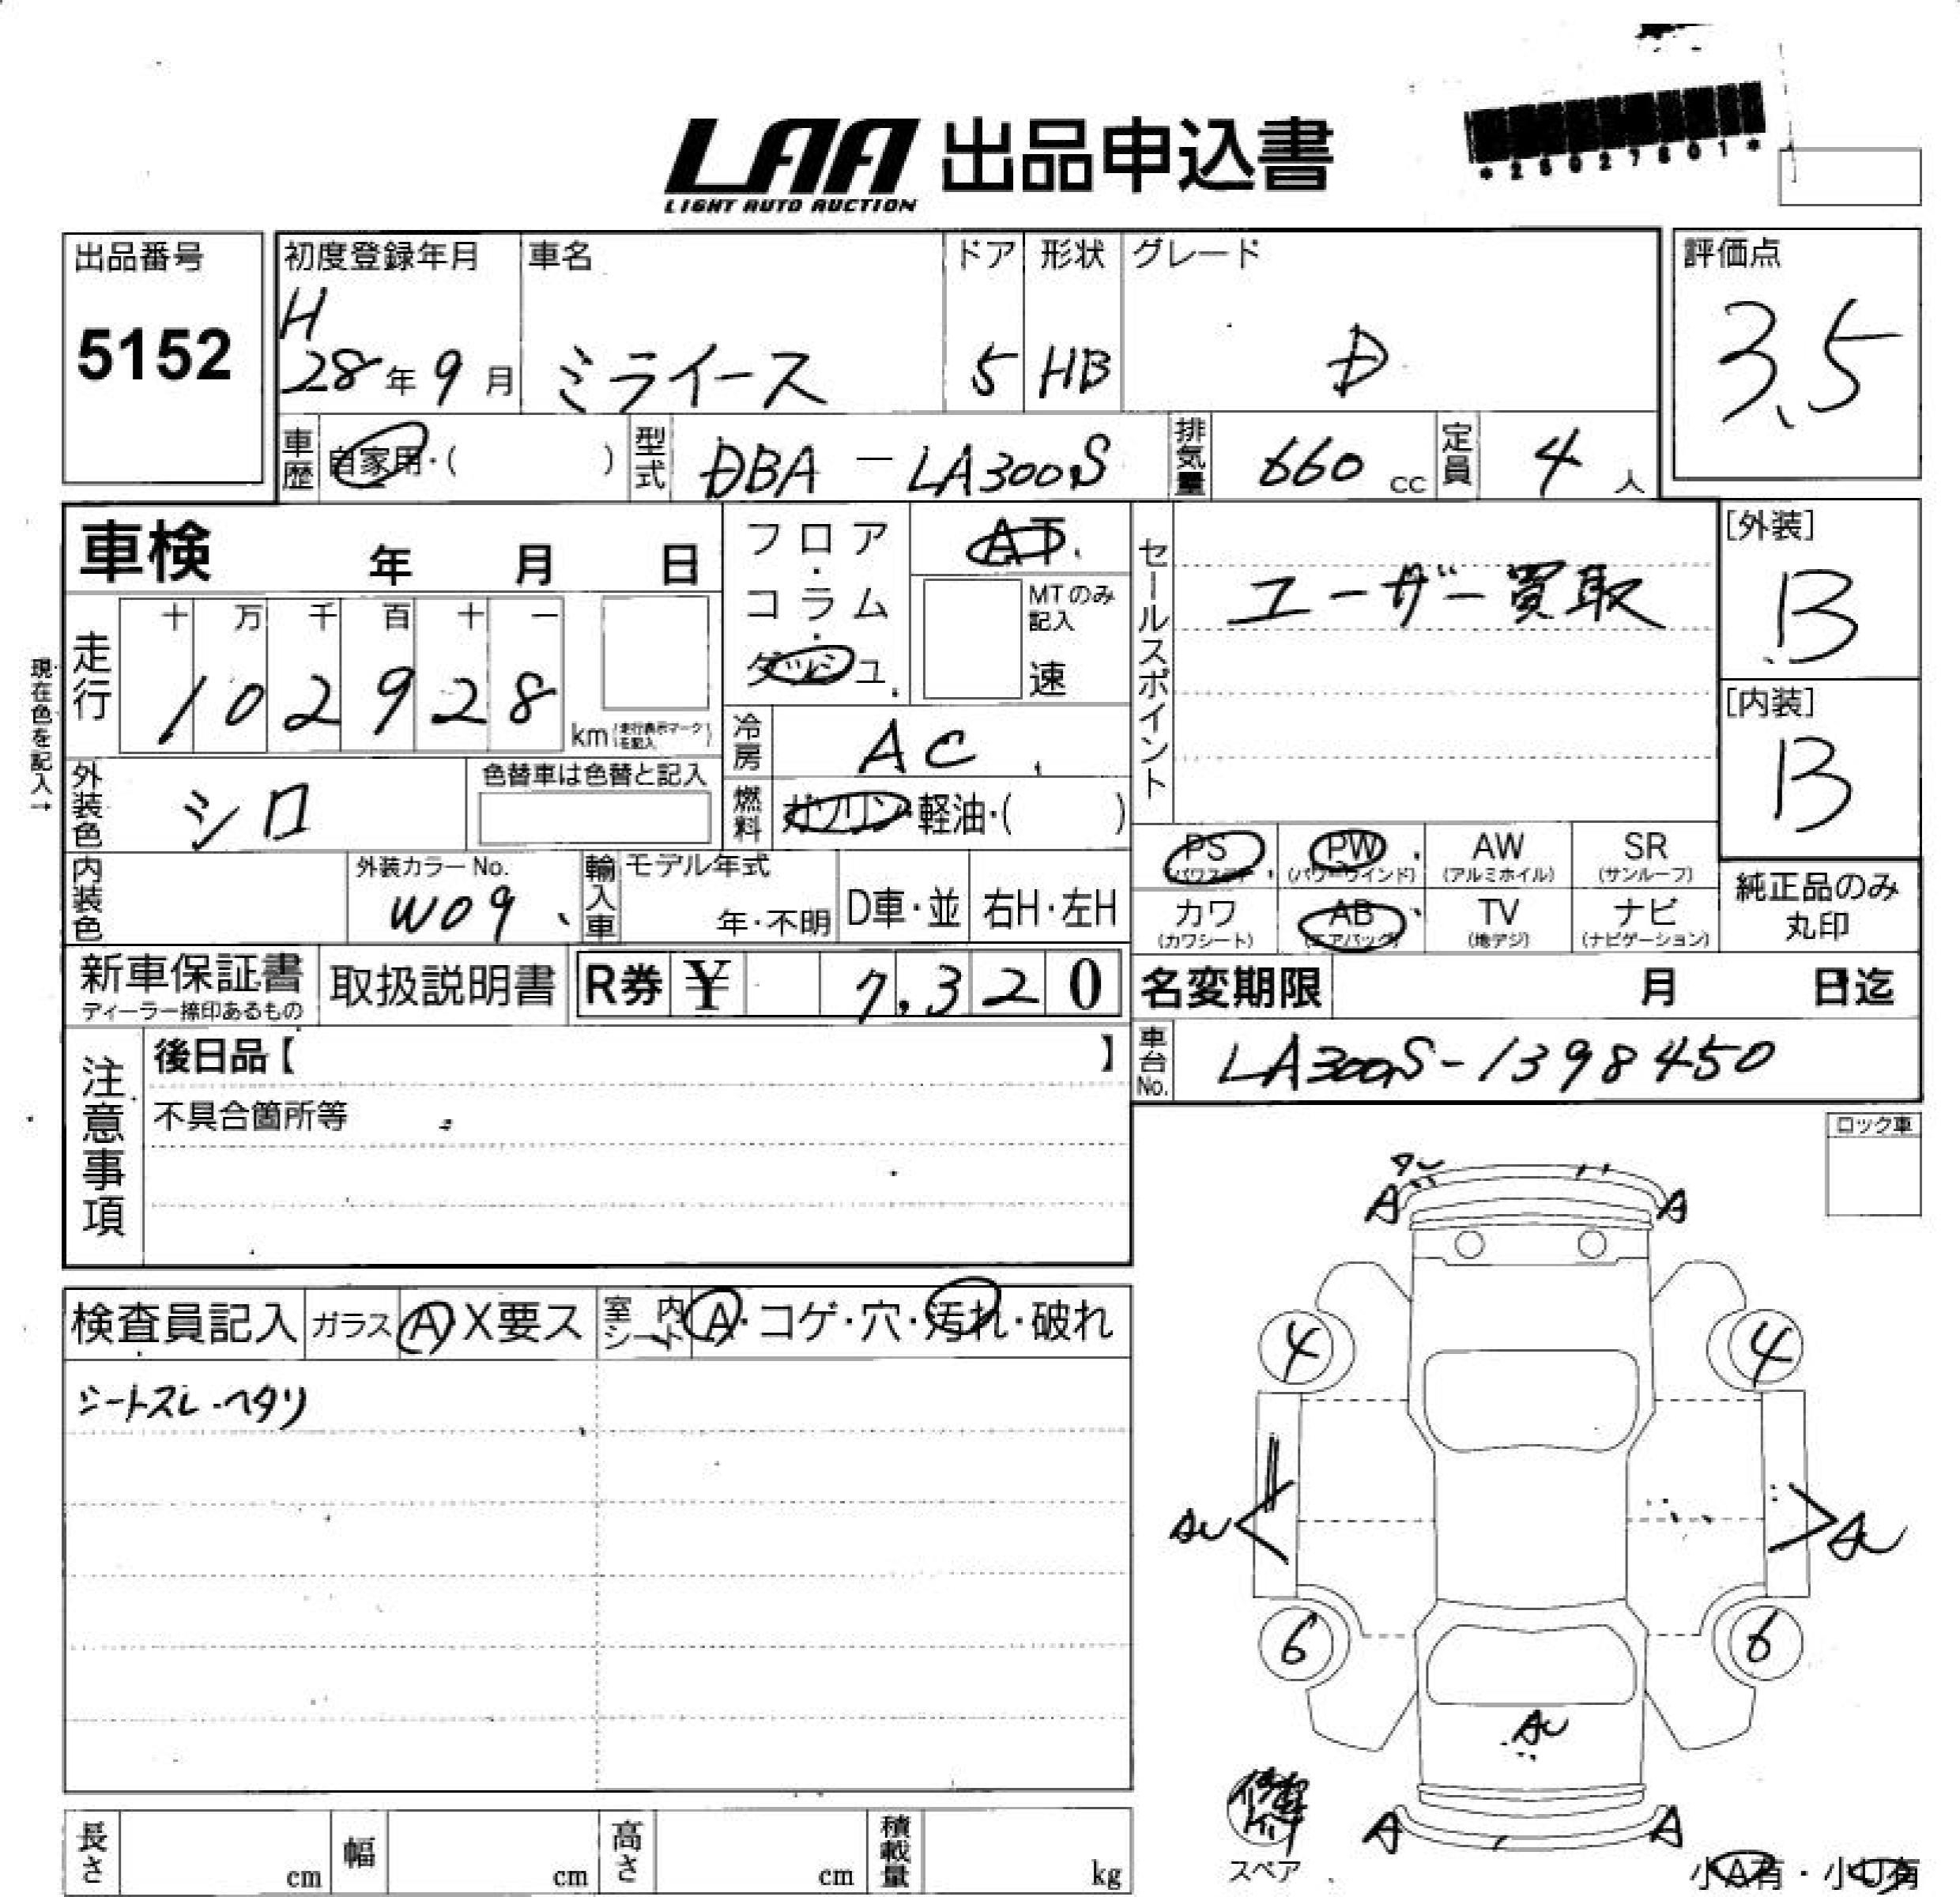 *25027601*
LAA 出品申込書
LIGHT AUTO AUCTION
出品番号
5152
初度登録年月
H
28年9月
車名
ミライース
ドア
5
形状
HB
グレード
D
評価点
3.5
車歴
自家用・( )
型式
DBA-LA300S
排気量
660cc
定員
4人
車検 年 月 日
フロア・コラム・ダッシュ
AT
MTのみ記入
速
セールスポイント
ユーザー買取
[外装]
B
[内装]
B
現在色を記入→
走行
十 万 千 百 十 一
1 0 2 9 2 8
km(走行表示マークを記入)
冷房
AC
外装色
シロ
色替車は色替と記入
燃料
ガソリン・軽油・( )
PS
(パワステ)
PW
(パワーウインド)
AW
(アルミホイル)
SR
(サンルーフ)
カワ
(カワシート)
AB
(エアバッグ)
TV
(地デジ)
ナビ
(ナビゲーション)
純正品のみ
丸印
内装色
外装カラーNo.
W09
輸入車
モデル年式
年・不明
D車・並
右H・左H
新車保証書
ディーラー捺印あるもの
取扱説明書
R券 ¥ 7,320
名変期限 月 日迄
車台No.
LA300S-1398450
注意事項
後日品【 】
不具合箇所等
ロック車
検査員記入
ガラス
A X要ス
室内シート
A・コゲ・穴・汚れ・破れ
シートスレ・ヘタリ
AU
A A
4 4
AU AU
6 6
AU
A A
スペア
小A有・小U有
長さ cm
幅 cm
高さ cm
積載量 kg